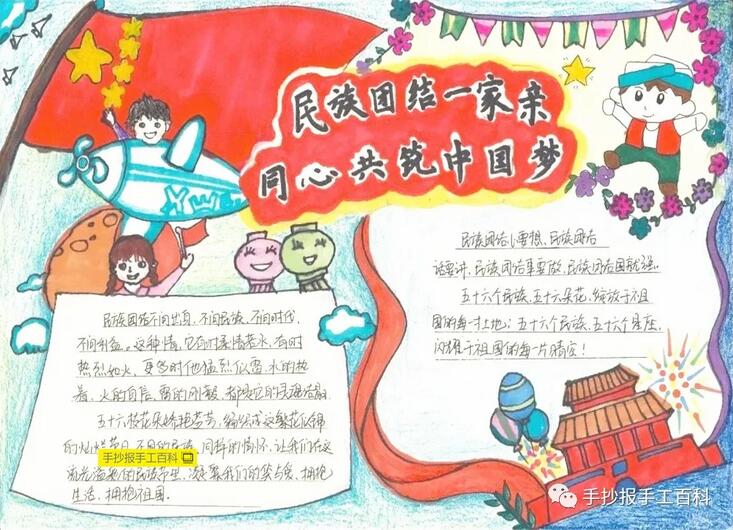 民族团结一家亲
同心共筑中国梦
民族团结心要想、民族团结
话要讲、民族团结事要做、民族团结国就强.
五十六个民族,五十六朵花,绽放于祖
国的每一寸土地;五十六个民族,五十六个星座,
闪耀于祖国的每一片晴空!
民族团结不问出身,不问民族,不问时代,
不问利益。这种情,它有时柔情若水,有时
热烈如火,更多时他猛烈似雷,水的热
着、火的自信、雷的刚毅、都是它的灵魂
五十六枝花朵
的 节日,不同的民族,同样的情怀,让我们在这
手抄报手工百科
凝聚我们的梦与爱,拥抱
生活,拥抱祖国。
手抄报手工百科